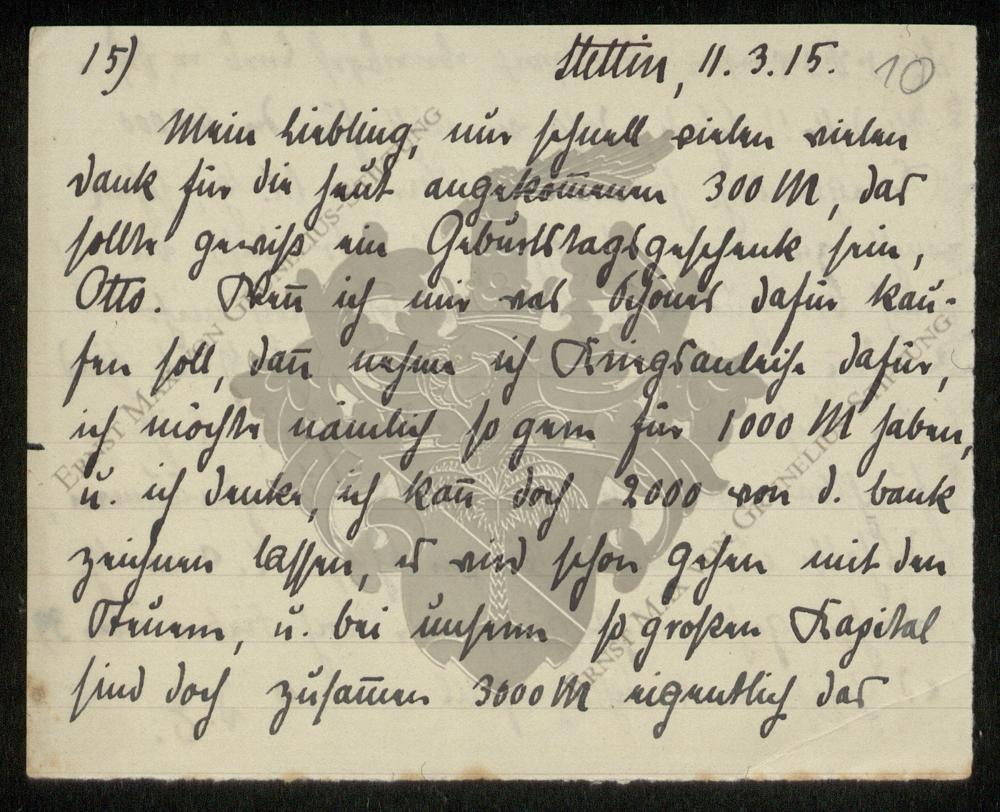 15) Stettin, 11.3.15. 10
Mein Liebling, nur schnell vielen vielen
Dank für die heut angekom̅enen 300 M, das
sollte gewiß ein Geburtstagsgeschenk sein,
Otto. Wen̅ ich mir was Schönes dafür kau-
fen soll, dan̅ nehme ich Kriegsanleihe dafür,
ich möchte nämlich so gern für 1000 M haben,
u. ich denke, ich kan̅ doch 2000 von d. Bank
zeichnen lassen, es wird schon gehen mit den
Steuern, u. bei unserm so großen Kapital
sind doch zusam̅en 3000 M eigentlich das
ERNST MAX VON GRNELIUS-STIFTUNG
ERNST MAX VON GRNELIUS-STIFTUNG